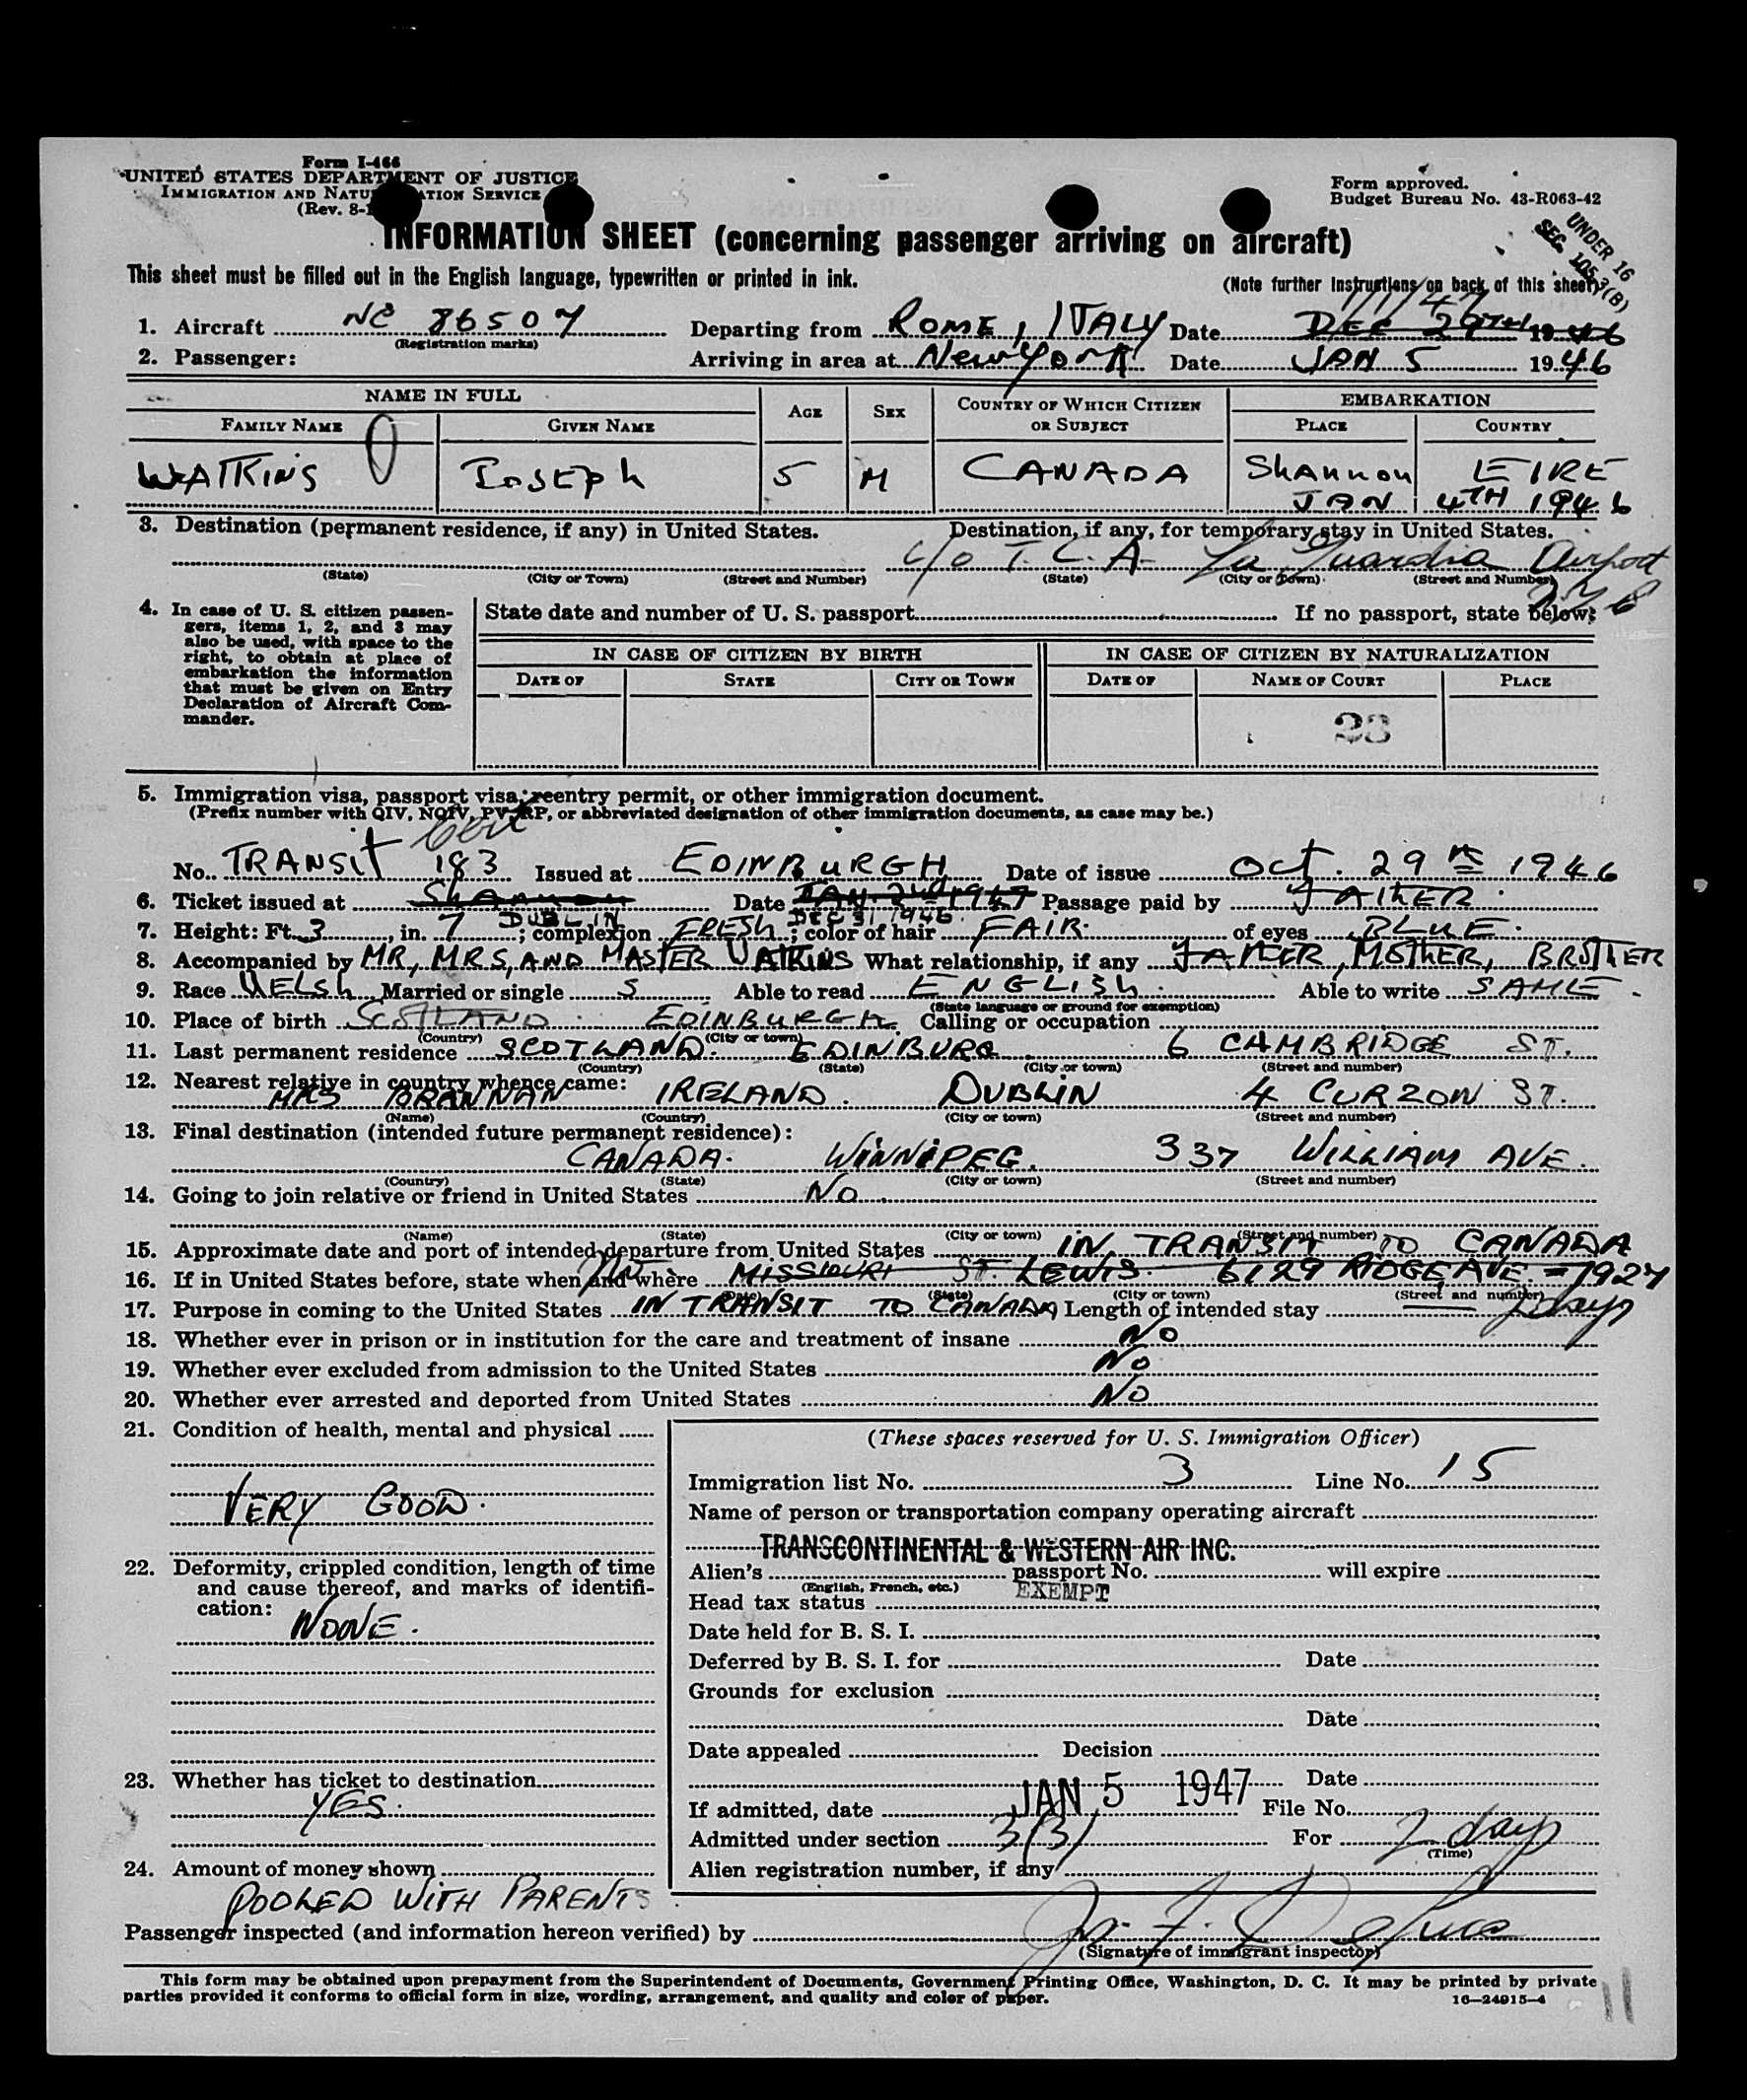 Form I-466
UNITED STATES DEPARTMENT OF JUSTICE
IMMIGRATION AND NATURALIZATION SERVICE
(Rev. 8-
Form approved.
Budget Bureau No. 43-R063-42
UNDER 16
SEC. 105.3(B)
INFORMATION SHEET (concerning passenger arriving on aircraft)
This sheet must be filled out in the English language, typewritten or printed in ink. (Note further instructions on back of this sheet)
1/1/47
1. Aircraft NC 86507 Departing from ROME, ITALY Date DEC 29TH 1946
(Registration marks)
2. Passenger: Arriving in area at New York Date JAN 5 1946
NAME IN FULL AGE SEX COUNTRY OF WHICH CITIZEN OR SUBJECT EMBARKATION
FAMILY NAME GIVEN NAME PLACE COUNTRY
WATKINS JOSEPH 5 M CANADA Shannon EIRE
JAN 4TH 1946
3. Destination (permanent residence, if any) in United States. Destination, if any, for temporary stay in United States.
c/o T.C.A. La Guardia Airport
(State) (City or Town) (Street and Number) (State) (City or Town) (Street and Number)
4. In case of U. S. citizen passen-
gers, items 1, 2, and 3 may
also be used, with space to the
right, to obtain at place of
embarkation the information
that must be given on Entry
Declaration of Aircraft Com-
mander.
State date and number of U. S. passport If no passport, state below:
IN CASE OF CITIZEN BY BIRTH IN CASE OF CITIZEN BY NATURALIZATION
DATE OF STATE CITY OR TOWN DATE OF NAME OF COURT PLACE
23
5. Immigration visa, passport visa, reentry permit, or other immigration document.
(Prefix number with QIV, NQIV, PV, RP, or abbreviated designation of other immigration documents, as case may be.)
No. TRANSIT 183 Issued at EDINBURGH Date of issue Oct. 29th 1946
6. Ticket issued at SHANNON Date JAN 2nd 1947 Passage paid by FATHER
DUBLIN DEC 31 1946
7. Height: Ft. 3, in. 7; complexion FRESH; color of hair FAIR. of eyes BLUE.
8. Accompanied by MR, MRS, AND MASTER WATKINS What relationship, if any FATHER, MOTHER, BROTHER
9. Race WELSH Married or single S Able to read ENGLISH. Able to write SAME.
(State language or ground for exemption)
10. Place of birth SCOTLAND EDINBURGH. Calling or occupation
(Country) (City or town)
11. Last permanent residence SCOTLAND. EDINBURG 6 CAMBRIDGE ST.
(Country) (State) (City or town) (Street and number)
12. Nearest relative in country whence came:
MRS BRANNAN IRELAND. DUBLIN 4 CURZON ST.
(Name) (Country) (City or town) (Street and number)
13. Final destination (intended future permanent residence):
CANADA. WINNIPEG. 337 WILLIAM AVE.
(Country) (State) (City or town) (Street and number)
14. Going to join relative or friend in United States No.
(Name) (State) (City or town) (Street and number)
15. Approximate date and port of intended departure from United States IN TRANSIT TO CANADA
16. If in United States before, state when and where MISSIOURI ST. LEWIS. 6129 RIDGE AVE. = 1927
(Date) (State) (City or town) (Street and number)
17. Purpose in coming to the United States IN TRANSIT TO CANADA Length of intended stay 2 days
18. Whether ever in prison or in institution for the care and treatment of insane No
19. Whether ever excluded from admission to the United States No
20. Whether ever arrested and deported from United States No
21. Condition of health, mental and physical
VERY GOOD.
22. Deformity, crippled condition, length of time
and cause thereof, and marks of identifi-
cation:
NONE.
23. Whether has ticket to destination
YES.
24. Amount of money shown
POOLED WITH PARENTS
(These spaces reserved for U. S. Immigration Officer)
Immigration list No. 3 Line No. 15
Name of person or transportation company operating aircraft
TRANSCONTINENTAL & WESTERN AIR INC.
Alien's passport No. will expire
(English, French, etc.)
Head tax status EXEMPT
Date held for B. S. I.
Deferred by B. S. I. for Date
Grounds for exclusion
Date
Date appealed Decision
Date
If admitted, date JAN 5 1947 File No.
Admitted under section 3(3) For 2 days
(Time)
Alien registration number, if any
Passenger inspected (and information hereon verified) by
(Signature of immigrant inspector)
This form may be obtained upon prepayment from the Superintendent of Documents, Government Printing Office, Washington, D. C. It may be printed by private
parties provided it conforms to official form in size, wording, arrangement, and quality and color of paper. 16—24915-4
11